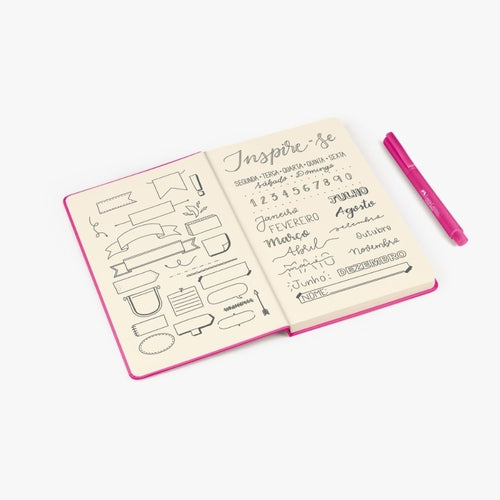 Inspire-se
SEGUNDA • TERÇA • QUARTA • QUINTA • SEXTA
Sábado Domingo
1 2 3 4 5 6 7 8 9 0
Janeiro
JULHO
FEVEREIRO
Agosto
Março
setembro
Abril
Outubro
maio
Novembro
Junho
DEZEMBRO
NOME: